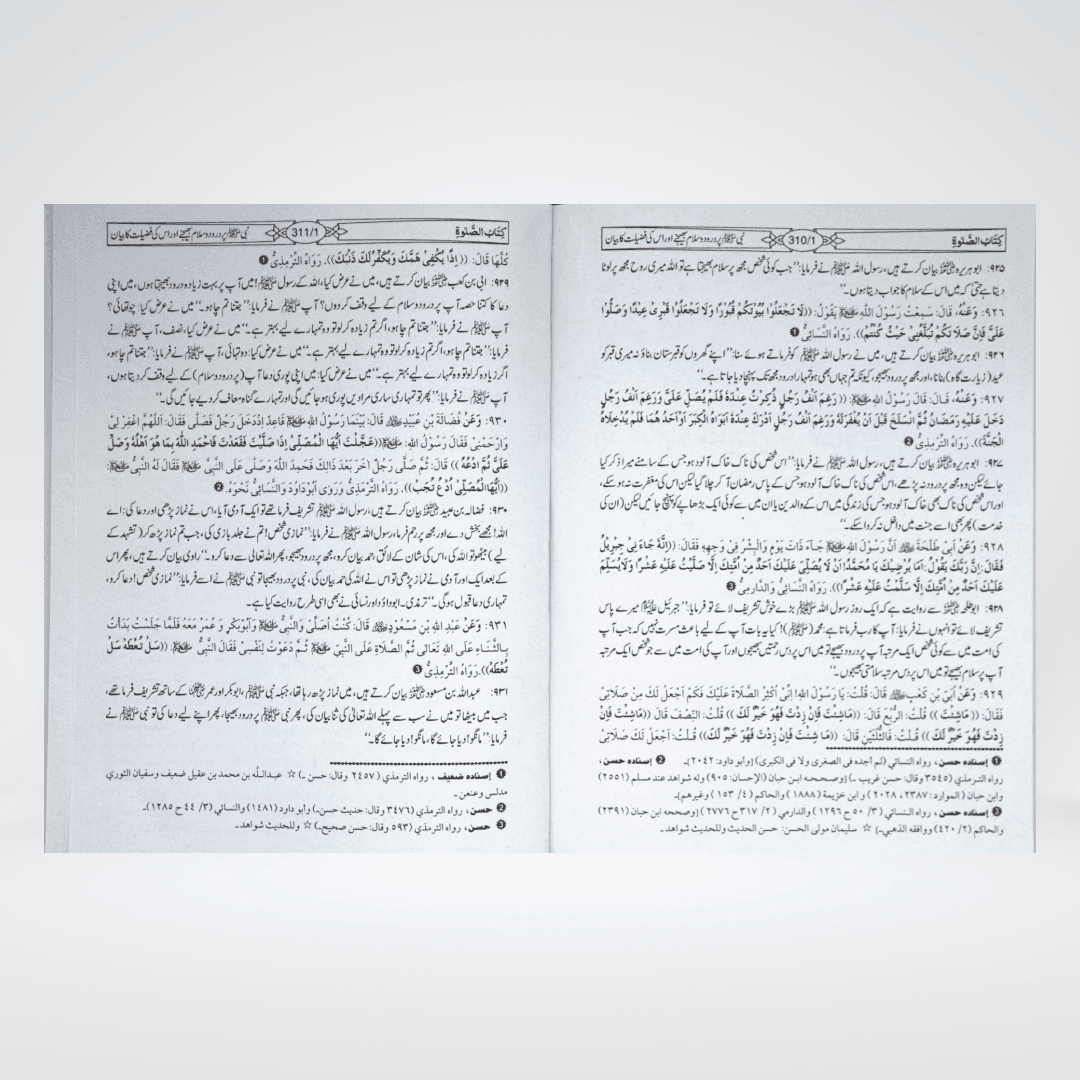 كِتَابُ الصَّلٰوةِ 310/1 نبی ﷺ پر درود و سلام بھیجنے اور اس کی فضیلت کا بیان
۹۲۵: ابو ہریرہ ؓ بیان کرتے ہیں، رسول اللہ ﷺ نے فرمایا: ’’جب کوئی شخص مجھ پر سلام بھیجتا ہے تو اللہ میری روح مجھ پر لوٹا
دیتا ہے حتیٰ کہ میں اس کے سلام کا جواب دیتا ہوں۔‘‘
۹۲۶: وَعَنْهُ، قَالَ: سَمِعْتُ رَسُوْلَ اللّٰهِ ﷺ يَقُوْلُ: ((لَا تَجْعَلُوْا بُيُوْتَكُمْ قُبُوْرًا وَلَا تَجْعَلُوْا قَبْرِيْ عِيْدًا وَصَلُّوْا
عَلَيَّ فَإِنَّ صَلَاتَكُمْ تُبَلِّغُنِيْ حَيْثُ كُنْتُمْ)). رَوَاهُ النَّسَائِيُّ ❶
۹۲۶: ابو ہریرہ ؓ بیان کرتے ہیں، میں نے رسول اللہ ﷺ کو فرماتے ہوئے سنا: ’’اپنے گھروں کو قبرستان بناؤ نہ میری قبر کو
عید (زیارت گاہ) بنانا، اور مجھ پر درود بھیجو، کیونکہ تم جہاں بھی ہو تمہارا درود مجھ تک پہنچا دیا جاتا ہے۔‘‘
۹۲۷: وَعَنْهُ، قَالَ: قَالَ رَسُوْلُ اللّٰهِ ﷺ: ((رَغِمَ أَنْفُ رَجُلٍ ذُكِرْتُ عِنْدَهُ فَلَمْ يُصَلِّ عَلَيَّ وَرَغِمَ أَنْفُ رَجُلٍ
دَخَلَ عَلَيْهِ رَمَضَانُ ثُمَّ انْسَلَخَ قَبْلَ أَنْ يُغْفَرَ لَهُ وَرَغِمَ أَنْفُ رَجُلٍ أَدْرَكَ عِنْدَهُ أَبَوَاهُ الْكِبَرَ أَوْ أَحَدُ هُمَا فَلَمْ يُدْخِلَاهُ
الْجَنَّةَ)). رَوَاهُ التِّرْمِذِيُّ ❷
۹۲۷: ابو ہریرہ ؓ بیان کرتے ہیں، رسول اللہ ﷺ نے فرمایا: ’’اس شخص کی ناک خاک آلود ہو جس کے سامنے میرا ذکر کیا
جائے لیکن وہ مجھ پر درود نہ پڑھے، اس شخص کی ناک خاک آلود ہو جس کے پاس رمضان آ کر چلا گیا لیکن اس کی مغفرت نہ ہو سکے،
اور اس شخص کی ناک بھی خاک آلود ہو جس کی زندگی میں اس کے والدین یا ان میں سے کوئی ایک بڑھاپے کو پہنچ جائیں لیکن (ان کی
خدمت) پھر بھی اسے جنت میں داخل نہ کرا سکے۔‘‘
۹۲۸: وَعَنْ أَبِيْ طَلْحَةَ ؓ أَنَّ رَسُوْلَ اللّٰهِ ﷺ جَآءَ ذَاتَ يَوْمٍ وَالْبِشْرُ فِيْ وَجْهِهِ فَقَالَ: ((إِنَّهُ جَاءَ نِيْ جِبْرِيْلُ
فَقَالَ: إِنَّ رَبَّكَ يَقُوْلُ: أَمَا يُرْضِيْكَ يَا مُحَمَّدُ! أَنْ لَّا يُصَلِّيَ عَلَيْكَ أَحَدٌ مِنْ أُمَّتِكَ إِلَّا صَلَّيْتُ عَلَيْهِ عَشْرًا وَلَا يُسَلِّمَ
عَلَيْكَ أَحَدٌ مِنْ أُمَّتِكَ إِلَّا سَلَّمْتُ عَلَيْهِ عَشْرًا)). رَوَاهُ النَّسَائِيُّ وَالدَّارِمِيُّ ❸
۹۲۸: ابوطلحہ ؓ سے روایت ہے کہ ایک روز رسول اللہ ﷺ بڑے خوش تشریف لائے تو فرمایا: ’’جبرئیل ؑ میرے پاس
تشریف لائے تو انہوں نے فرمایا: آپ کا رب فرماتا ہے: محمد (ﷺ)! کیا یہ بات آپ کے لیے باعث مسرت نہیں کہ جب آپ
کی امت میں سے کوئی شخص ایک مرتبہ آپ پر درود بھیجے تو میں اس پر دس رحمتیں بھیجوں اور آپ کی امت میں سے جو شخص ایک مرتبہ
آپ پر سلام بھیجے تو میں اس پر دس مرتبہ سلامتی بھیجوں۔‘‘
۹۲۹: وَعَنْ أُبَيِّ بْنِ كَعْبٍ ؓ قَالَ: قُلْتُ: يَا رَسُوْلَ اللّٰهِ! إِنِّيْ أُكْثِرُ الصَّلَاةَ عَلَيْكَ فَكَمْ أَجْعَلُ لَكَ مِنْ صَلَاتِيْ
فَقَالَ: ((مَاشِئْتَ)) قُلْتُ: الرُّبُعَ قَالَ: ((مَاشِئْتَ فَإِنْ زِدْتَ فَهُوَ خَيْرٌ لَّكَ)) قُلْتُ: النِّصْفَ قَالَ ((مَاشِئْتَ فَإِنْ
زِدْتَ فَهُوَ خَيْرٌ لَّكَ)) قُلْتُ: فَالثُّلُثَيْنِ قَالَ: ((مَا شِئْتَ فَإِنْ زِدْتَ فَهُوَ خَيْرٌ لَّكَ)) قُلْتُ: أَجْعَلُ لَكَ صَلَاتِيْ
❶ إسناده حسن، رواه النسائي (لم أجده فی الصغری ولا فی الکبری) [وأبو داود: ۲۰۴۲]۔ ❷ إسناده حسن،
رواه الترمذي (۳۵۴۵ وقال: حسن غريب۔) [وصححه ابن حبان (الإحسان: ۹۰۵) وله شواهد عند مسلم (۲۵۵۱)
وابن حبان (الموارد: ۲۳۸۷، ۲۰۲۸) وابن خزيمة (۱۸۸۸) والحاكم (۴/ ۱۵۳) وغيرهم]۔
❸ إسناده حسن، رواه النسائي (۳/ ۵۰ ح ۱۲۹۶) والدارمي (۲/ ۳۱۷ ح ۲۷۷۶) [وصححه ابن حبان (۲۳۹۱)
والحاكم (۲/ ۴۲۰) ووافقه الذهبي۔] ☆ سليمان مولى الحسن: حسن الحديث وللحديث شواهد۔
كِتَابُ الصَّلٰوةِ 311/1 نبی ﷺ پر درود و سلام بھیجنے اور اس کی فضیلت کا بیان
كُلَّهَا قَالَ: ((إِذًا يُكْفٰى هَمُّكَ وَيُكَفَّرُ لَكَ ذَنْبُكَ)). رَوَاهُ التِّرْمِذِيُّ ❶
۹۲۹: ابی بن کعب ؓ بیان کرتے ہیں، میں نے عرض کیا، اللہ کے رسول ﷺ! میں آپ پر بہت زیادہ درود بھیجتا ہوں، میں اپنی
دعا کا کتنا حصہ آپ پر درود و سلام کے لیے وقف کر دوں؟ آپ ﷺ نے فرمایا: ’’جتنا تم چاہو۔‘‘ میں نے عرض کیا: چوتھائی؟
آپ ﷺ نے فرمایا: ’’جتنا تم چاہو، اگر تم زیادہ کر لو تو وہ تمہارے لیے بہتر ہے۔‘‘ میں نے عرض کیا، نصف، آپ ﷺ نے
فرمایا: ’’جتنا تم چاہو، اگر تم زیادہ کر لو تو وہ تمہارے لیے بہتر ہے۔‘‘ میں نے عرض کیا: دو تہائی، آپ ﷺ نے فرمایا: ’’جتنا تم چاہو،
اگر زیادہ کر لو تو وہ تمہارے لیے بہتر ہے۔‘‘ میں نے عرض کیا: میں اپنی پوری دعا آپ (پر درود و سلام) کے لیے وقف کر دیتا ہوں،
آپ ﷺ نے فرمایا: ’’پھر تو تمہاری ساری مرادیں پوری ہو جائیں گی اور تمہارے گناہ معاف کر دیے جائیں گی۔‘‘
۹۳۰: وَعَنْ فُضَالَةَ بْنِ عُبَيْدٍ ؓ قَالَ: بَيْنَمَا رَسُوْلُ اللّٰهِ ﷺ قَاعِدٌ إِذْ دَخَلَ رَجُلٌ فَصَلّٰى فَقَالَ: اَللّٰهُمَّ اغْفِرْ لِيْ
وَارْحَمْنِيْ فَقَالَ رَسُوْلُ اللّٰهِ ﷺ: ((عَجِلْتَ أَيُّهَا الْمُصَلِّيْ! إِذَا صَلَّيْتَ فَقَعَدْتَ فَاحْمَدِ اللّٰهَ بِمَا هُوَ أَهْلُهُ وَصَلِّ
عَلَيَّ ثُمَّ ادْعُهُ)) قَالَ: ثُمَّ صَلّٰى رَجُلٌ آخَرُ بَعْدَ ذَالِكَ فَحَمِدَ اللّٰهَ وَصَلّٰى عَلَى النَّبِيِّ ﷺ فَقَالَ لَهُ النَّبِيُّ ﷺ:
((أَيُّهَا الْمُصَلِّيْ! ادْعُ تُجَبْ)). رَوَاهُ التِّرْمِذِيُّ وَرَوٰى أَبُوْ دَاوُدَ وَالنَّسَائِيُّ نَحْوَهُ. ❷
۹۳۰: فضالہ بن عبید ؓ بیان کرتے ہیں، رسول اللہ ﷺ تشریف فرما تھے تو ایک آدمی آیا، اس نے نماز پڑھی اور دعا کی: اے
اللہ! مجھے بخش دے اور مجھ پر رحم فرما، رسول اللہ ﷺ نے فرمایا: ’’نمازی شخص! تم نے جلد بازی کی، جب تم نماز پڑھ کر (تشہد کے
لیے) بیٹھو تو اللہ کی، اس کی شان کے لائق، حمد بیان کرو، مجھ پر درود بھیجو، پھر اللہ تعالیٰ سے دعا کرو۔‘‘ راوی بیان کرتے ہیں، پھر اس
کے بعد ایک اور آدمی نے نماز پڑھی تو اس نے اللہ کی حمد بیان کی، نبی پر درود بھیجا تو نبی ﷺ نے اسے فرمایا: ’’نمازی شخص! دعا کرو،
تمہاری دعا قبول ہوگی۔‘‘ ترمذی۔ ابوداؤد اور نسائی نے بھی اسی طرح روایت کیا ہے۔
۹۳۱: وَعَنْ عَبْدِ اللّٰهِ بْنِ مَسْعُوْدٍ ؓ قَالَ: كُنْتُ أُصَلِّيْ وَالنَّبِيُّ ﷺ وَأَبُوْبَكْرٍ وَ عُمَرُ مَعَهُ فَلَمَّا جَلَسْتُ بَدَأْتُ
بِالثَّنَاءِ عَلَى اللّٰهِ تَعَالٰى ثُمَّ الصَّلَاةِ عَلَى النَّبِيِّ ﷺ ثُمَّ دَعَوْتُ لِنَفْسِيْ فَقَالَ النَّبِيُّ ﷺ: ((سَلْ تُعْطَهْ سَلْ
تُعْطَهْ)). رَوَاهُ التِّرْمِذِيُّ ❸
۹۳۱: عبداللہ بن مسعود ؓ بیان کرتے ہیں، میں نماز پڑھ رہا تھا، جبکہ نبی ﷺ، ابوبکر اور عمر ؓ کے ساتھ تشریف فرما تھے،
جب میں بیٹھا تو میں نے سب سے پہلے اللہ تعالیٰ کی ثنا بیان کی، پھر نبی ﷺ پر درود بھیجا، پھر اپنے لیے دعا کی تو نبی ﷺ نے
فرمایا: ’’مانگو! دیا جائے گا، مانگو! دیا جائے گا۔‘‘
❶ إسناده ضعيف، رواه الترمذي (۲۴۵۷ وقال: حسن۔) ☆ عبداللّٰه بن محمد بن عقيل ضعيف وسفيان الثوري
مدلس وعنعن۔
❷ حسن، رواه الترمذي (۳۴۷۶ وقال: حديث حسن۔) وأبو داود (۱۴۸۱) والنسائي (۳/ ۴۴ ح ۱۲۸۵)۔
❸ حسن، رواه الترمذي (۵۹۳ وقال: حسن صحيح۔) ☆ وللحديث شواهد۔